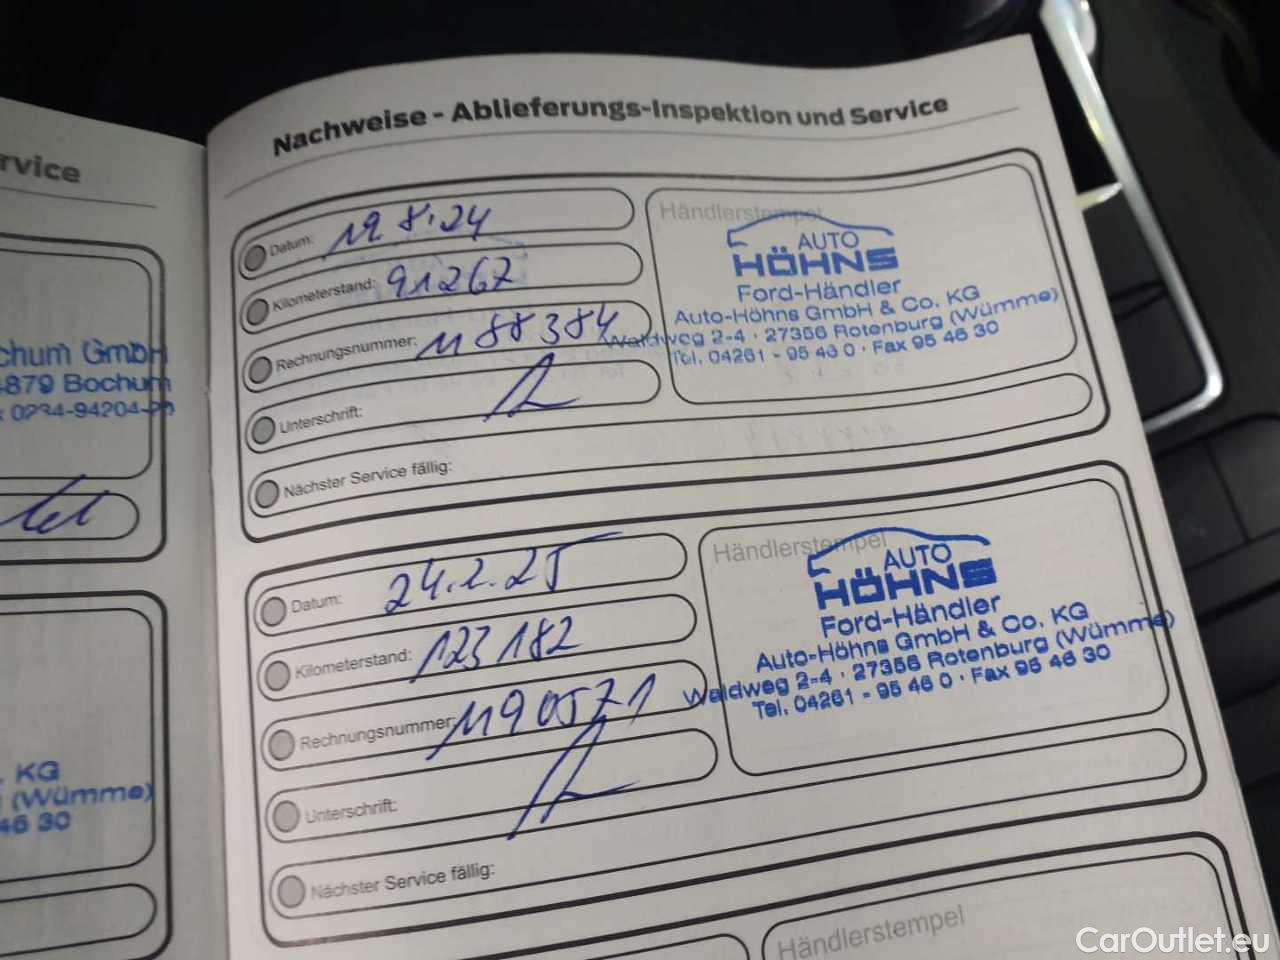 rvice
chum GmbH
4879 Bochum
x 0234-94204-20
. KG
(Wümme)
46 30
Nachweise - Ablieferungs-Inspektion und Service
Datum: 19 8.24
Kilometerstand: 91267
Rechnungsnummer: 1188384
Unterschrift:
Nächster Service fällig:
Händlerstempel
AUTO
HÖHNS
Ford-Händler
Auto-Höhns GmbH & Co. KG
Waldweg 2-4 · 27356 Rotenburg (Wümme)
Tel. 04261 - 95 46 0 · Fax 95 46 30
Datum: 24.2.25
Kilometerstand: 123182
Rechnungsnummer: 1190571
Unterschrift:
Nächster Service fällig:
Händlerstempel
AUTO
HÖHNS
Ford-Händler
Auto-Höhns GmbH & Co. KG
Waldweg 2-4 · 27356 Rotenburg (Wümme)
Tel. 04261 - 95 46 0 · Fax 95 46 30
Händlerstempel
CarOutlet.eu